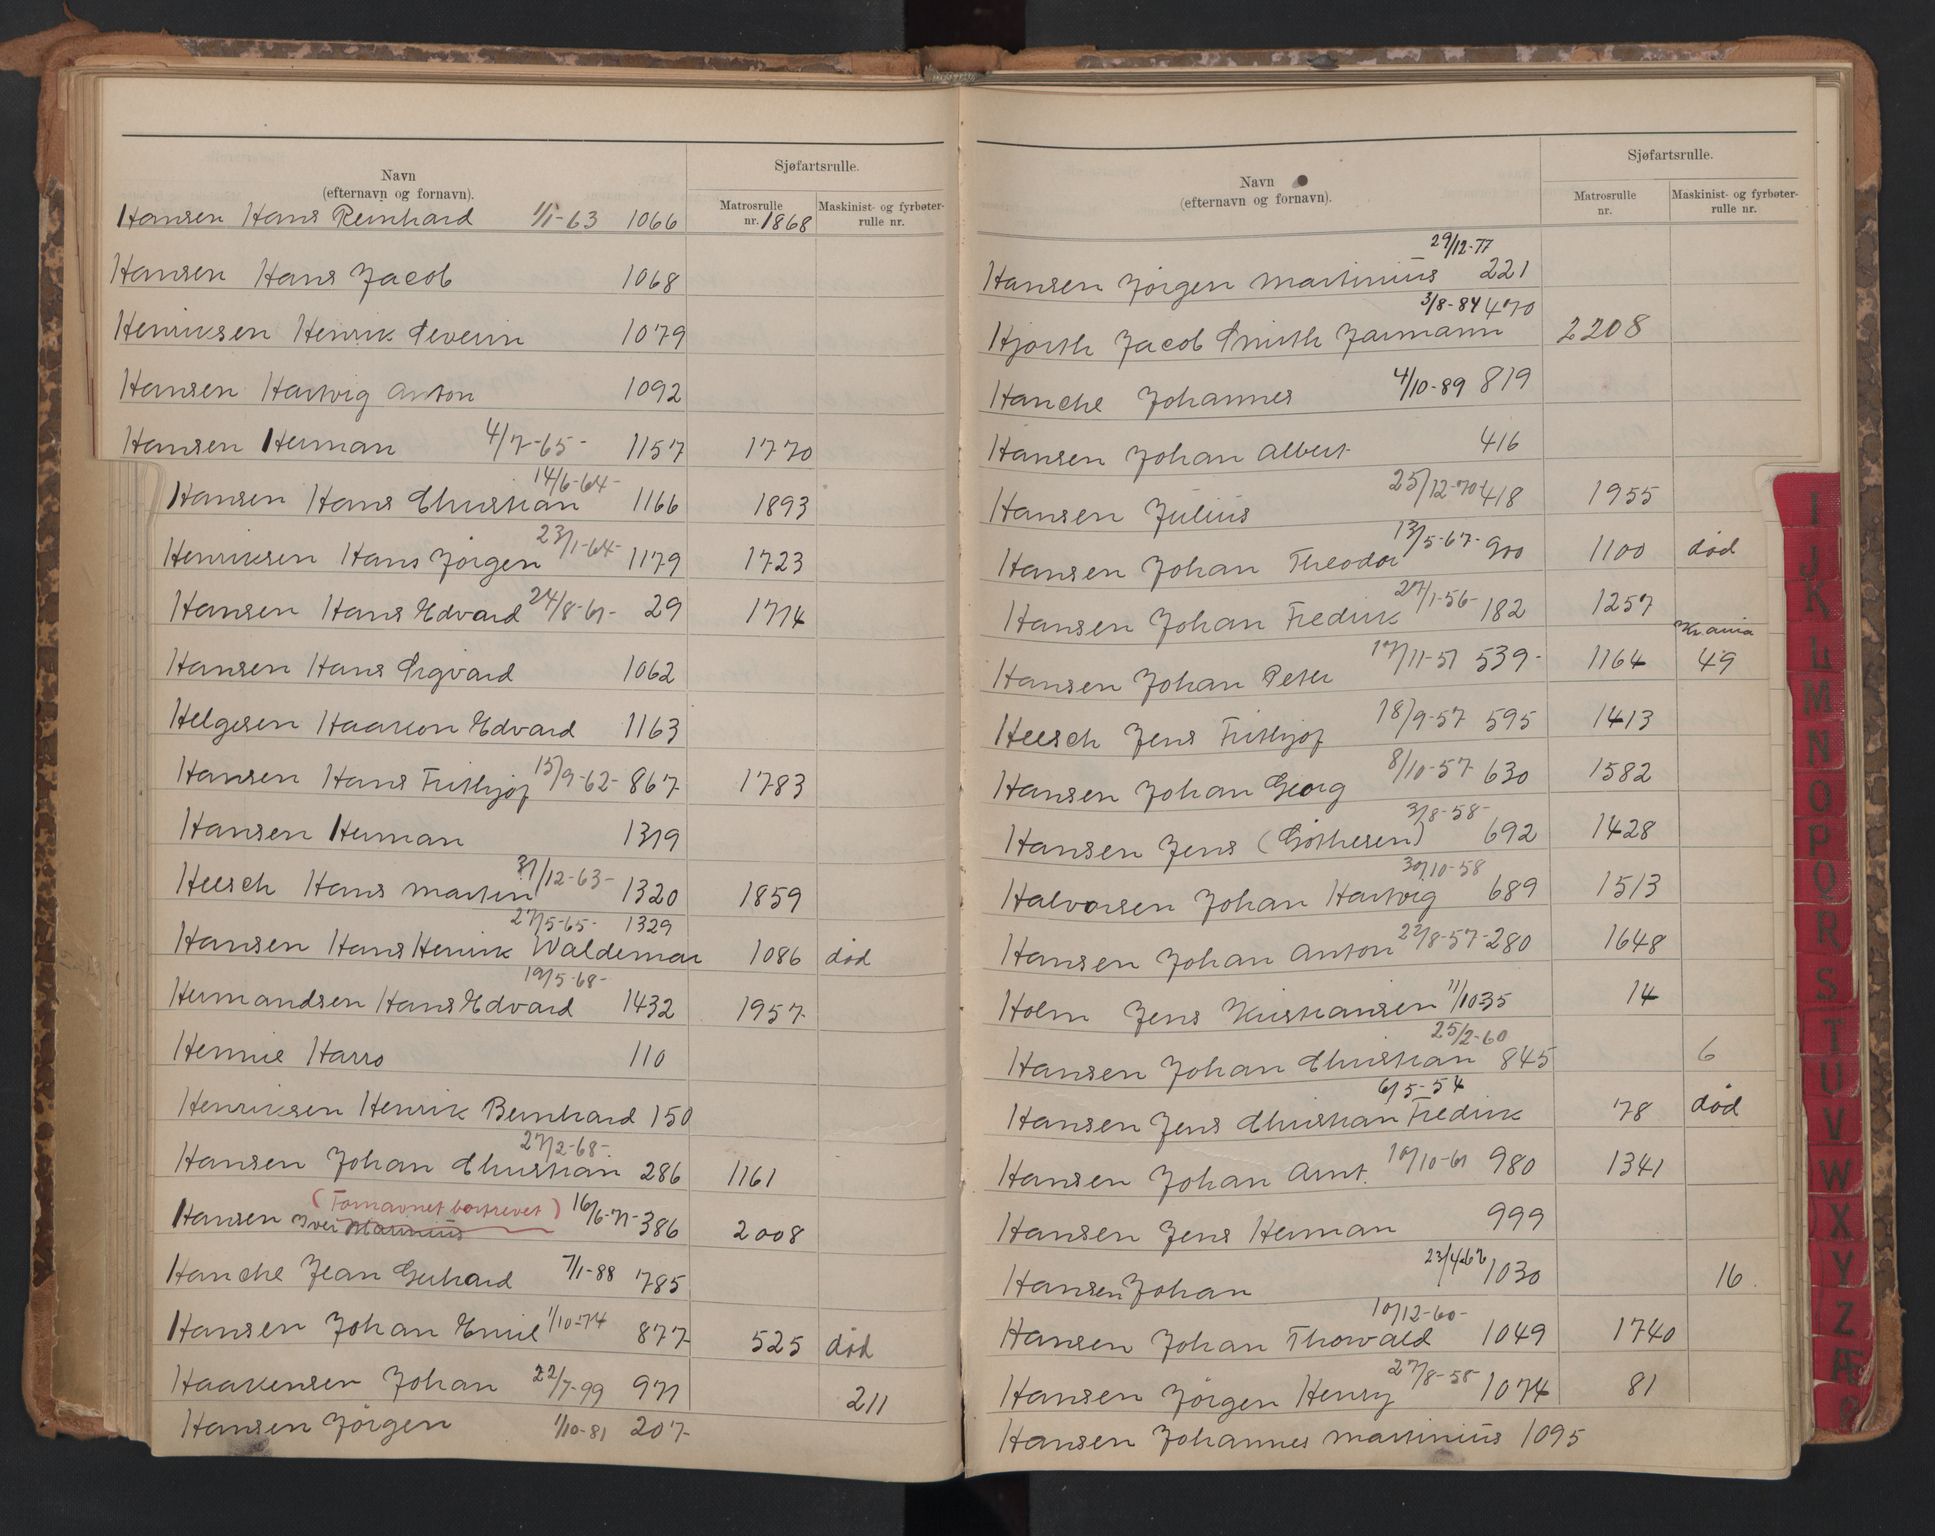 Navn
(efternavn og fornavn).
Sjøfartsrulle.
Matrosrulle nr.
Maskinist- og fyrbøter-rulle nr.
Hansen Hans Reinhard 1/1-63 1066 1868
Hansen Hans Jacob 1068
Henriksen Henrik Severin 1079
Hansen Hartvig Anton 1092
Hansen Herman 4/7-65- 1157 1770
Hansen Hans Christian 14/6-64- 1166 1893
Henriksen Hans Jörgen 23/1-64- 1179 1723
Hansen Hans Edvard 24/8-61- 29 1714
Hansen Hans Sigvard 1062
Helgesen Haakon Edvard 1163
Hansen Hans Frithjof 15/9-62- 867 1783
Hansen Herman 1319
Heesch Hans Martin 31/12-63- 1320 1859
Hansen Hans Henrik Waldemar 27/5-65- 1329 1086 död
Hermandsen Hans Edvard 19/5-68- 1432 1957
Hennie Harro 110
Henriksen Henrik Bernhard 150
Hansen Johan Christian 27/2-68- 286 1161
(Fornavnet bortrevet)
Hansen Iver Marinius 16/6-71- 386 2008
Hanche Jean Gerhard 7/1-88 785
Hansen Johan Emil 1/10-74 877 525 död
Haakensen Johan 22/7-99 971 211
Hansen Jörgen 1/10-81 207
Navn
(efternavn og fornavn).
Sjøfartsrulle.
Matrosrulle nr.
Maskinist- og fyrbøter-rulle nr.
Hansen Jörgen Martinius 29/12-77 221
Hjorth Jacob Smith Jarmann 3/8-84 470 2208
Hanche Johannes 4/10-89 819
Hansen Johan Albert 416
Hansen Julius 25/12-70- 418 1955
Hansen Johan Theodor 13/5-67- 900 1100 död
Hansen Johan Fredrik 27/1-56- 182 1257
Hansen Johan Peter 17/11-51 539- 1164 Kr.ania 49
Heesch Jens Frithjof 18/9-57 595 1413
Hansen Johan Georg 8/10-57 630 1582
Hansen Jens (Göthesen) 3/8-58- 692 1428
Halvorsen Johan Hartvig 30/10-58 689 1513
Hansen Johan Anton 22/8-57- 280 1648
Holm Jens Kristiansen 11/10 35 14
Hansen Johan Christian 25/2-60 845 6
Hansen Jens Christian Fredrik 6/5-54 78 död
Hansen Johan Arnt. 10/10-61 980 1341
Hansen Jens Herman 999
Hansen Johan 23/4-62 1030 16.
Hansen Johan Thorvald 10/12-60- 1049 1740
Hansen Jörgen Henry 27/8-58 1074 81
Hansen Johannes Martinius 1095
I
J
K
L
M
N
O
P
Q
R
S
T
U
V
W
X
Y
Z
Æ
Ø